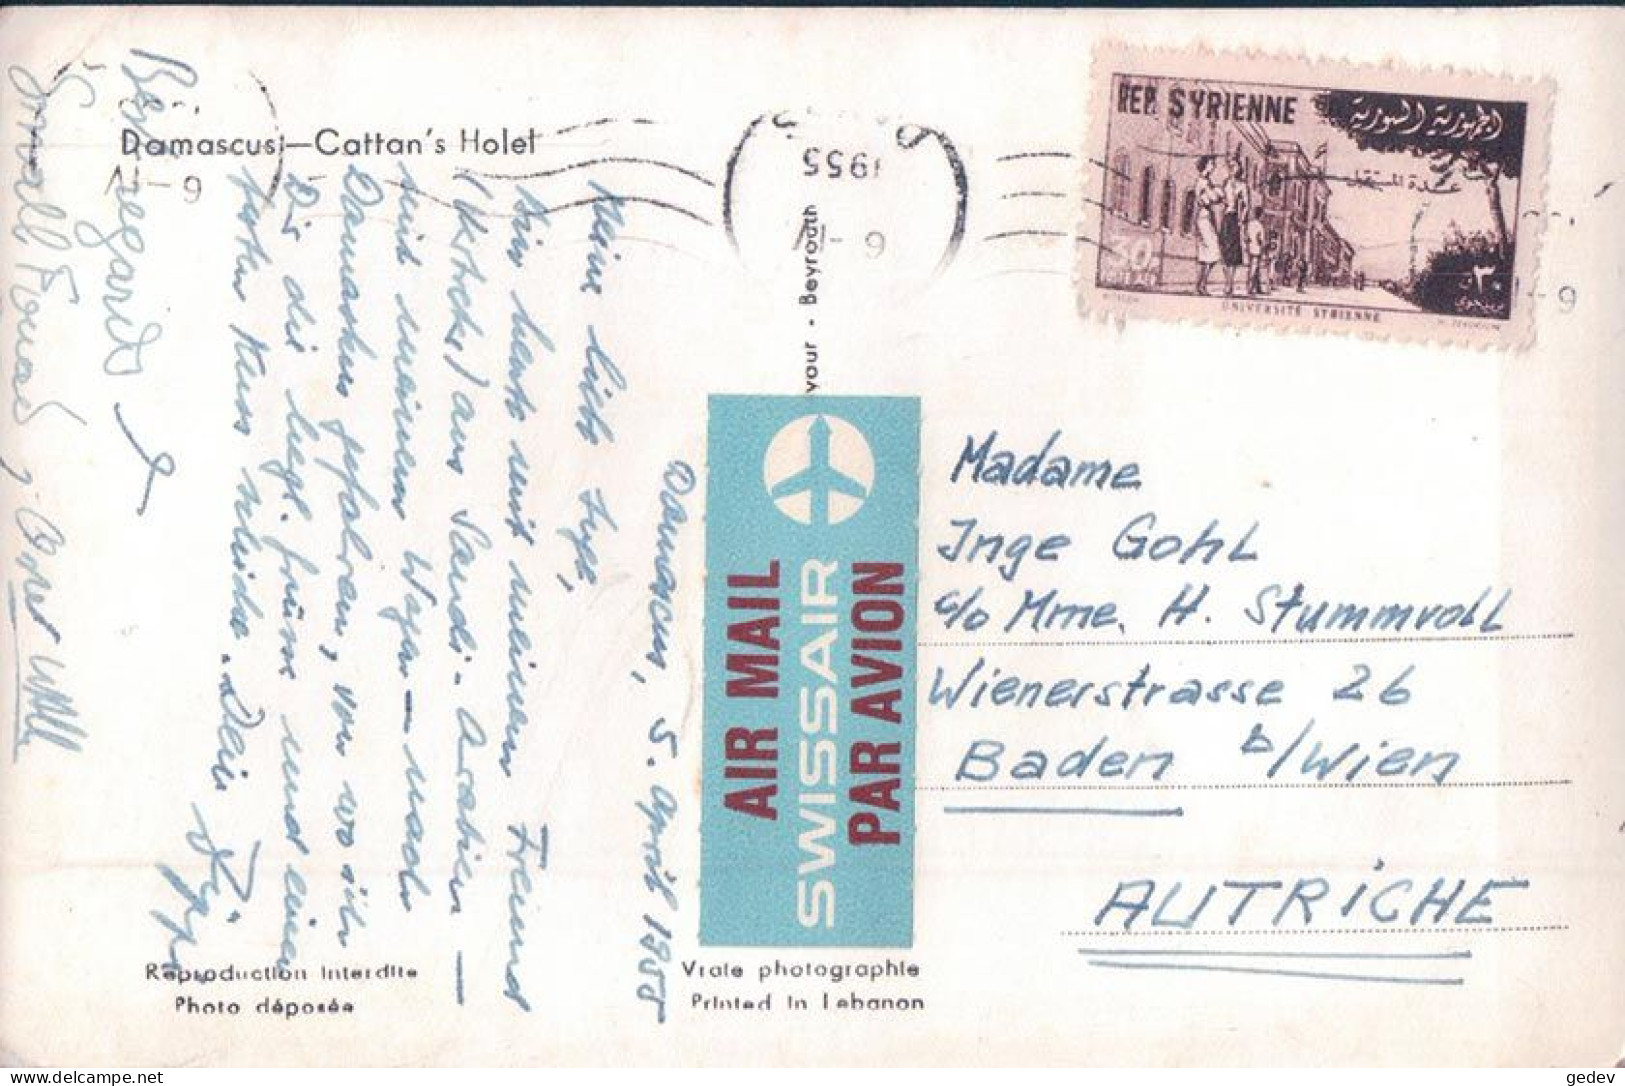 Damascus—Cattan's Hotel
Damascus, 5. April 1955
Meine liebe Inge,
bin heute mit meinem Freund
aus Saudi-Arabien —
mit meinem Wagen — nach
Damaskus gefahren, von wo ich
Dir die herzl. Grüsse und einen
Kuss schicke. Dein
Best regards
REP. SYRIENNE
الجمهورية السورية
30
٣٠
UNIVERSITÉ SYRIENNE
1955
9-IV
9-IV
-9
AIR MAIL
SWISSAIR
PAR AVION
Beyrouth
Madame
Inge Gohl
c/o Mme. H. Stummvoll
Wienerstrasse 26
Baden b/Wien
AUTRICHE
Reproduction Interdite
Photo déposée
Vraie photographie
Printed in Lebanon
gedev